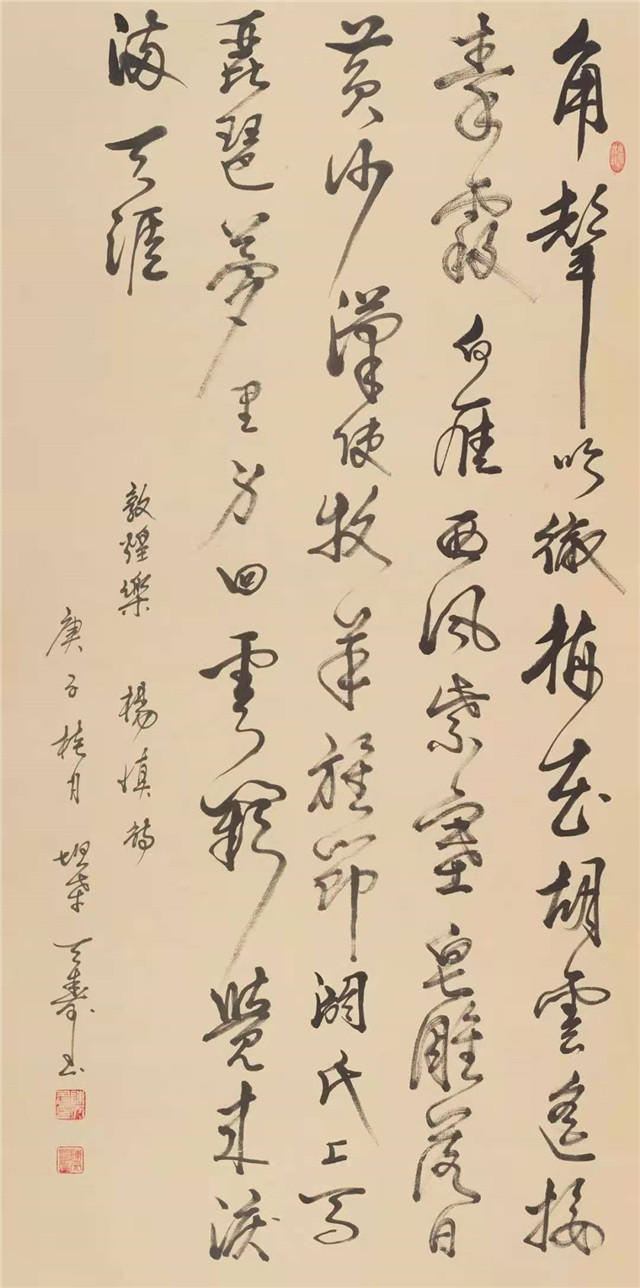 角聲吹徹梅花胡雲遙接
秦霞白雁西風紫塞皂雕落日
黄沙漢使牧羊旌節閼氏上馬
琵琶夢里身回雲闕覺來淚
滿天涯
敦煌樂 楊慎詩
庚子桂月 天壽書